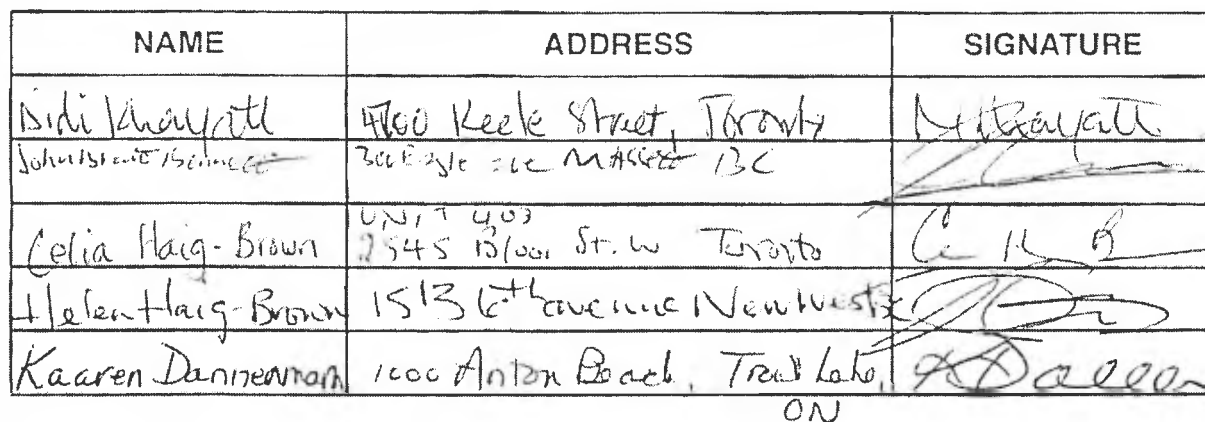 NAME ADDRESS SIGNATURE
Didi Khayatt 4700 Keele Street, Toronto MKhayatt
John Brent Bennett MASSETT BC
UNIT 403
Celia Haig-Brown 2545 Bloor St. W Toronto C H B
Helen Haig-Brown 1513 6th avenue New West
Kaaren Dannenmann 1000 Anton Beach, Trout Lake,
ON